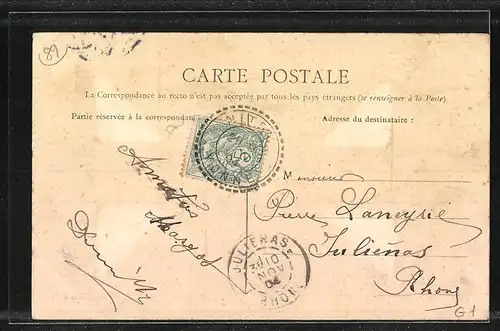 89
CARTE POSTALE
La Correspondance au recto n'est pas acceptée par tous les pays étrangers (se renseigner à la Poste)
Partie réservée à la correspondan
Adresse du destinataire :
Monsieur
Pierre Laneyrie
Juliénas
Rhone
Amitiés
JULIENAS
RHON
G1